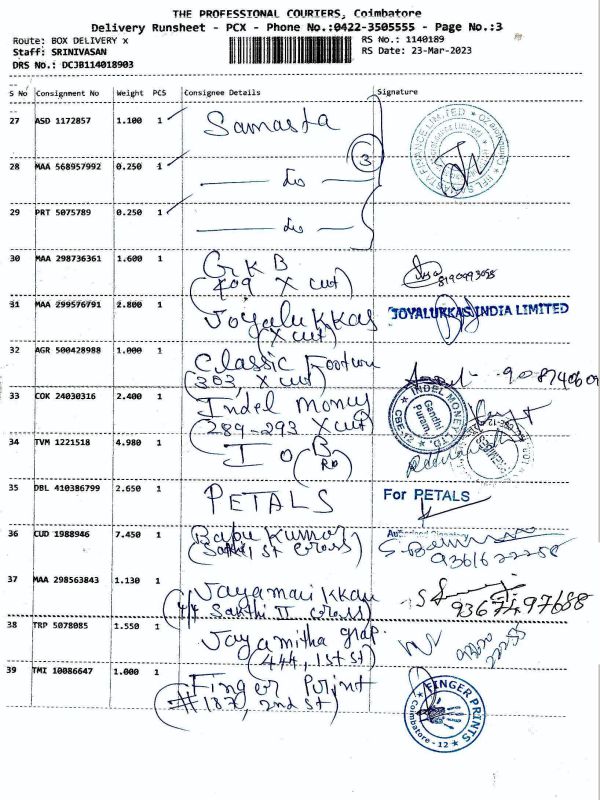 THE PROFESSIONAL COURIERS, Coimbatore
Delivery Runsheet - PCX - Phone No.:0422-3505555 - Page No.:3
Route: BOX DELIVERY x
RS No.: 1140189
Staff: SRINIVASAN
RS Date: 23-Mar-2023
DRS No.: DCJB114018903
S No Consignment No Weight PCS Consignee Details Signature
27 ASD 1172857 1.100 1 Samasta
3
28 MAA 568957992 0.250 1 do
29 PRT 5075789 0.250 1 do
30 MAA 298736361 1.600 1 GKB
(409 X cut)
31 MAA 299576791 2.800 1 Joyalukkas
(X cut)
JOYALUKKAS INDIA LIMITED
32 AGR 500428988 1.000 1 Classic
(303, X cut)
33 COK 24030316 2.400 1 Indel Money
(289-293 X cut)
INDEL MONEY LTD
CBE-12
Gandhi
Puram
34 TVM 1221518 4.980 1 IOB
35 DBL 410386799 2.650 1 PETALS
For PETALS
36 CUD 1988946 7.450 1 Babu Kumar
(Sakthi St Cross)
37 MAA 298563843 1.130 1
Sakthi II cross)
9367497688
38 TRP 5078085 1.550 1 Jayamitha
(444, 1st st)
39 TMI 10086647 1.000 1 Finger Print
(#187, 2nd st)
FINGER PRINTS
Coimbatore - 12